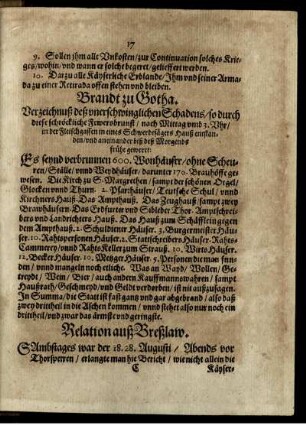 17
9. Sollen ihm alle Vnkosten / zur Continuation solches Krie-
ges / wohin / vnd wann er solche begeret / geliefert werden.
10. Darzu alle Käyserliche Erblande / Ihm vnd seiner Arma-
da zu einer Retirada offen stehen vnd bleiben.
Brandt zu Gotha.
Verzeichnuß deß vnerschwinglichen Schadens / so durch
diese schröckliche Fewersbrunst / nach Mittag vmb 3. Vhr /
in der Fleischgassen in eines Schwerdfegers Hauß entstan-
den / vnd aneinander biß deß Morgends
frühe geweret:
Es seynd verbrunnen 600. Wonhäuser / ohne Scheu-
ren / Ställe / vnnd Weydhäuser / darunter 170. Brauhöffe ge-
wesen. Die Kirch zu S. Margrethen / sampt der schönen Orgel /
Glocken vnnd Thurn. 2. Pfarrhäuser / Teutsche Schul / vnnd
Kirchners Hauß. Das Ampthauß. Das Zeughauß / sampt zwey
Brauhäusern Das Erdfurter vnd Siebleber Thor. Amptschrei-
bers vnd Landrichters Hauß. Das Hauß zum Schäfflein gegen
dem Ampthauß. 2. Schuldiener Häuser. 3. Burgermeister Häu-
ser. 10. Rahtspersonen Häuser. 2. Stattschreibers Häuser. Rahts-
Cammerey / vnnd Rahts Keller zum Strauß. 10. Wirts Häuser.
12. Becker Häuser. 10. Metzger Häuser. 9. Personen die man funn-
den / vnnd mangeln noch etliche. Was an Waydt / Wollen / Ge-
treydt / Wein / Bier / auch andern Kauffmannswahren / sampt
Haußraht / Geschmeyd / vnd Geldt verdorben / ist nit außzusagen.
In Summa / die Statt ist fast gantz vnd gar abgebrand / also daß
zwey drittheil in die Aschen kommen / vnnd stehet also nur noch ein
drittheil / vnd zwar das ärmste vnd geringste.
Relation auß Breßlaw.
SAmbstages war der 18. 28. Augusti / Abends vor
Thorsperren / erlangte man hie Bericht / wie nicht allein die
C
Käyser-